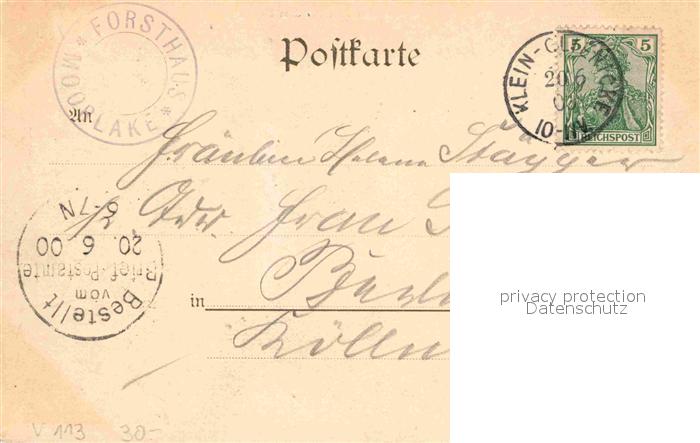 * FORSTHAUS * MOORLAKE
Postkarte
KLEIN-GLIENICKE
20 6
10-11V
5 5
REICHSPOST
An
Fräulein Helene
Adr. Frau
in Berlin
Kölln
Bestellt
vom
Brief-Postamte
20. 6 00
6-7N
privacy protection
Datenschutz
V 113 30-